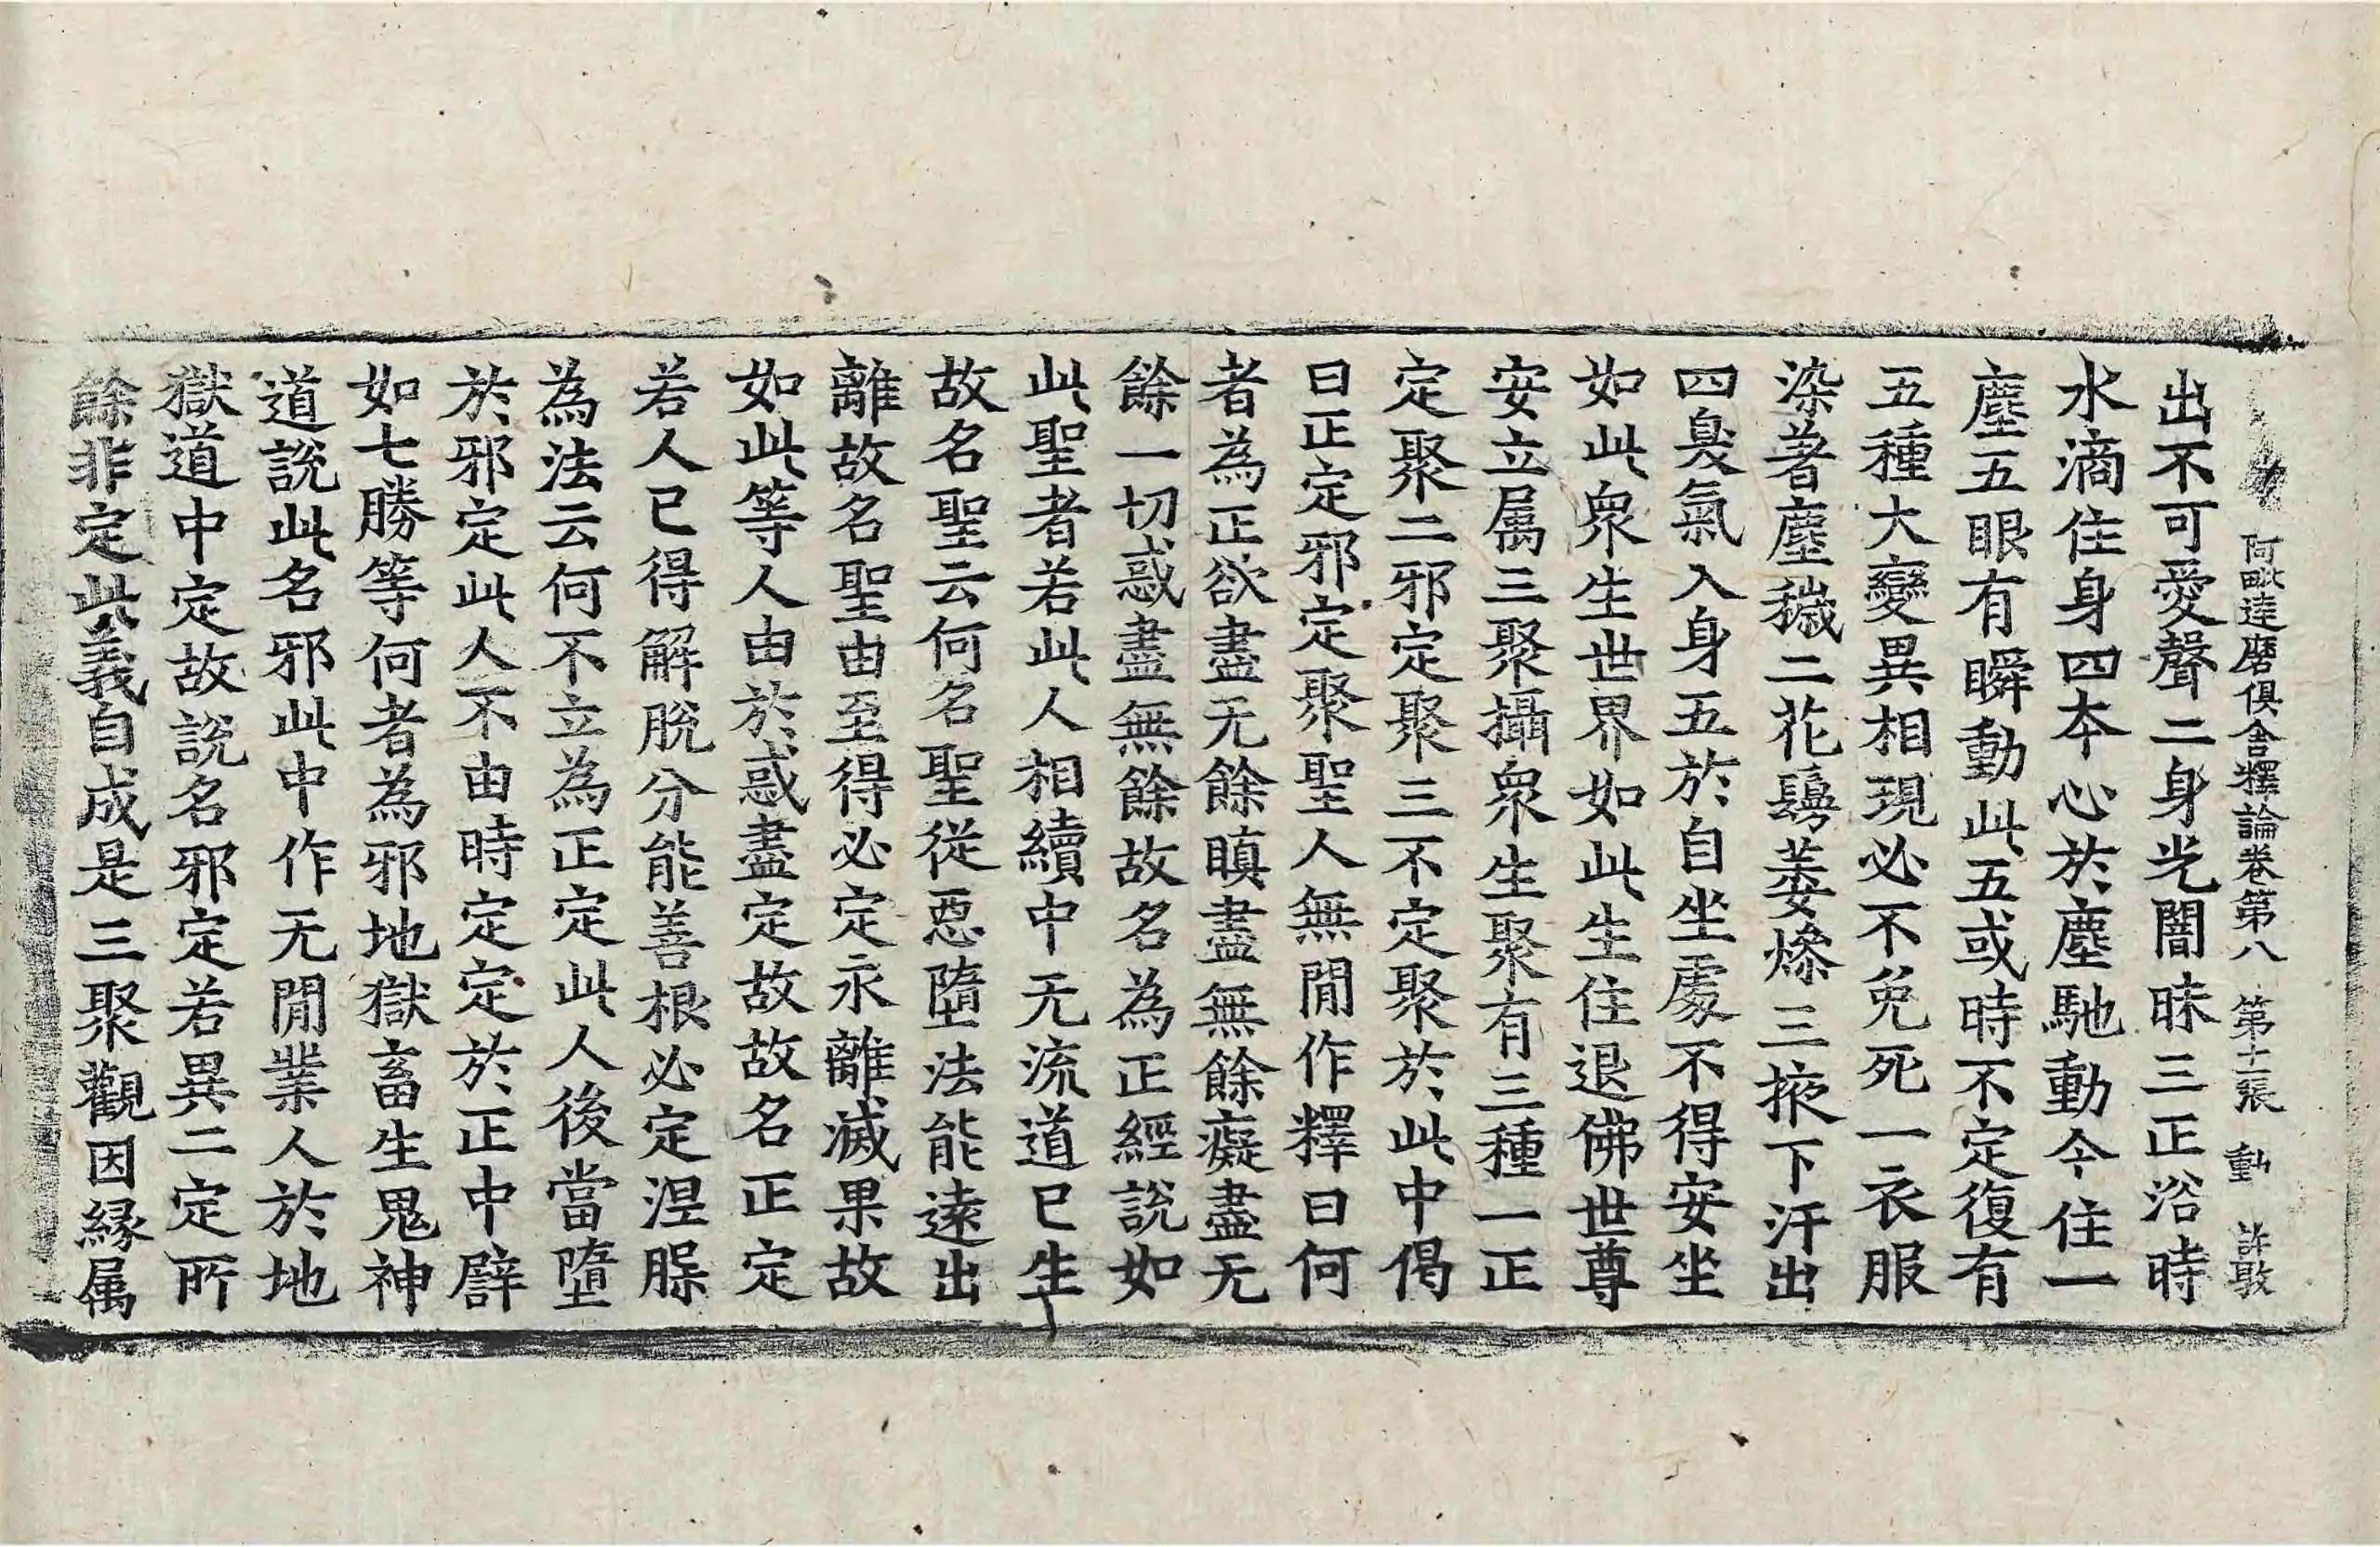 阿毗達磨俱舍釋論卷第八 第十二張 動 許敢
出不可愛聲二身光闇昧三正浴時
水滴住身四本心於塵馳動今住一
塵五眼有瞬動此五或時不定復有
五種大變異相現必不免死一衣服
染著塵穢二花鬘萎燥三掖下汗出
四臭氣入身五於自坐處不得安坐
如此衆生世界如此生住退佛世尊
安立属三聚攝衆生聚有三種一正
定聚二邪定聚三不定聚於此中偈
曰正定邪定聚聖人無間作釋曰何
者為正欲盡无餘瞋盡無餘癡盡无
餘一切惑盡無餘故名為正經說如
此聖者若此人相續中无流道已生
故名聖云何名聖從惡墮法能遠出
離故名聖由至得必定永離滅果故
如此等人由於惑盡定故故名正定
若人已得解脫分能善根必定涅槃
為法云何不立為正定此人後當墮
於邪定此人不由時定定於正中譬
如七勝等何者為邪地獄畜生鬼神
道說此名邪此中作无間業人於地
獄道中定故說名邪定若異二定所
餘非定此義自成是三聚觀因緣属